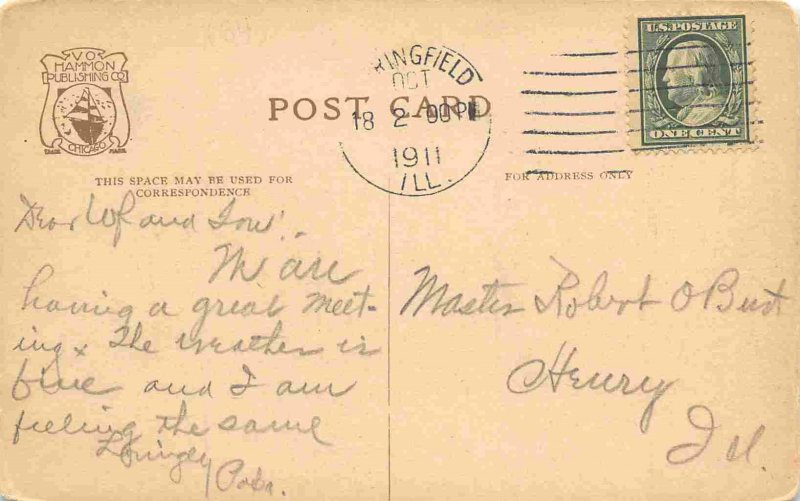 V O
HAMMON
PUBLISHING CO
CHICAGO
TRADE MARK
POST CARD
RINGFIELD
OCT
18 2 00 PM
1911
ILL.
U.S. POSTAGE
ONE CENT
THIS SPACE MAY BE USED FOR
CORRESPONDENCE
FOR ADDRESS ONLY
Dear and
are
having a great meet-
ing x The weather is
fine and I am
feeling the same
Lovingly
Papa.
Master Robert O
Henry
Ill.